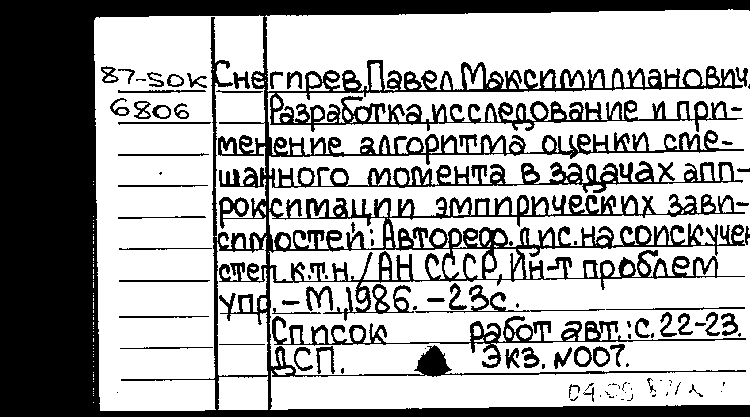 87-50К Снегирев, Павел Максимилианович.
6806 Разработка, исследование и при-
менение алгоритма оценки сме-
шанного момента в задачах апп-
роксимации эмпирических зави-
симостей: Автореф. дис. на соиск. учен
степ. к.т.н. / АН СССР, Ин-т проблем
упр. – М., 1986. – 23с.
Список работ авт.: с. 22-23.
ДСП. Экз. N007.
04.09